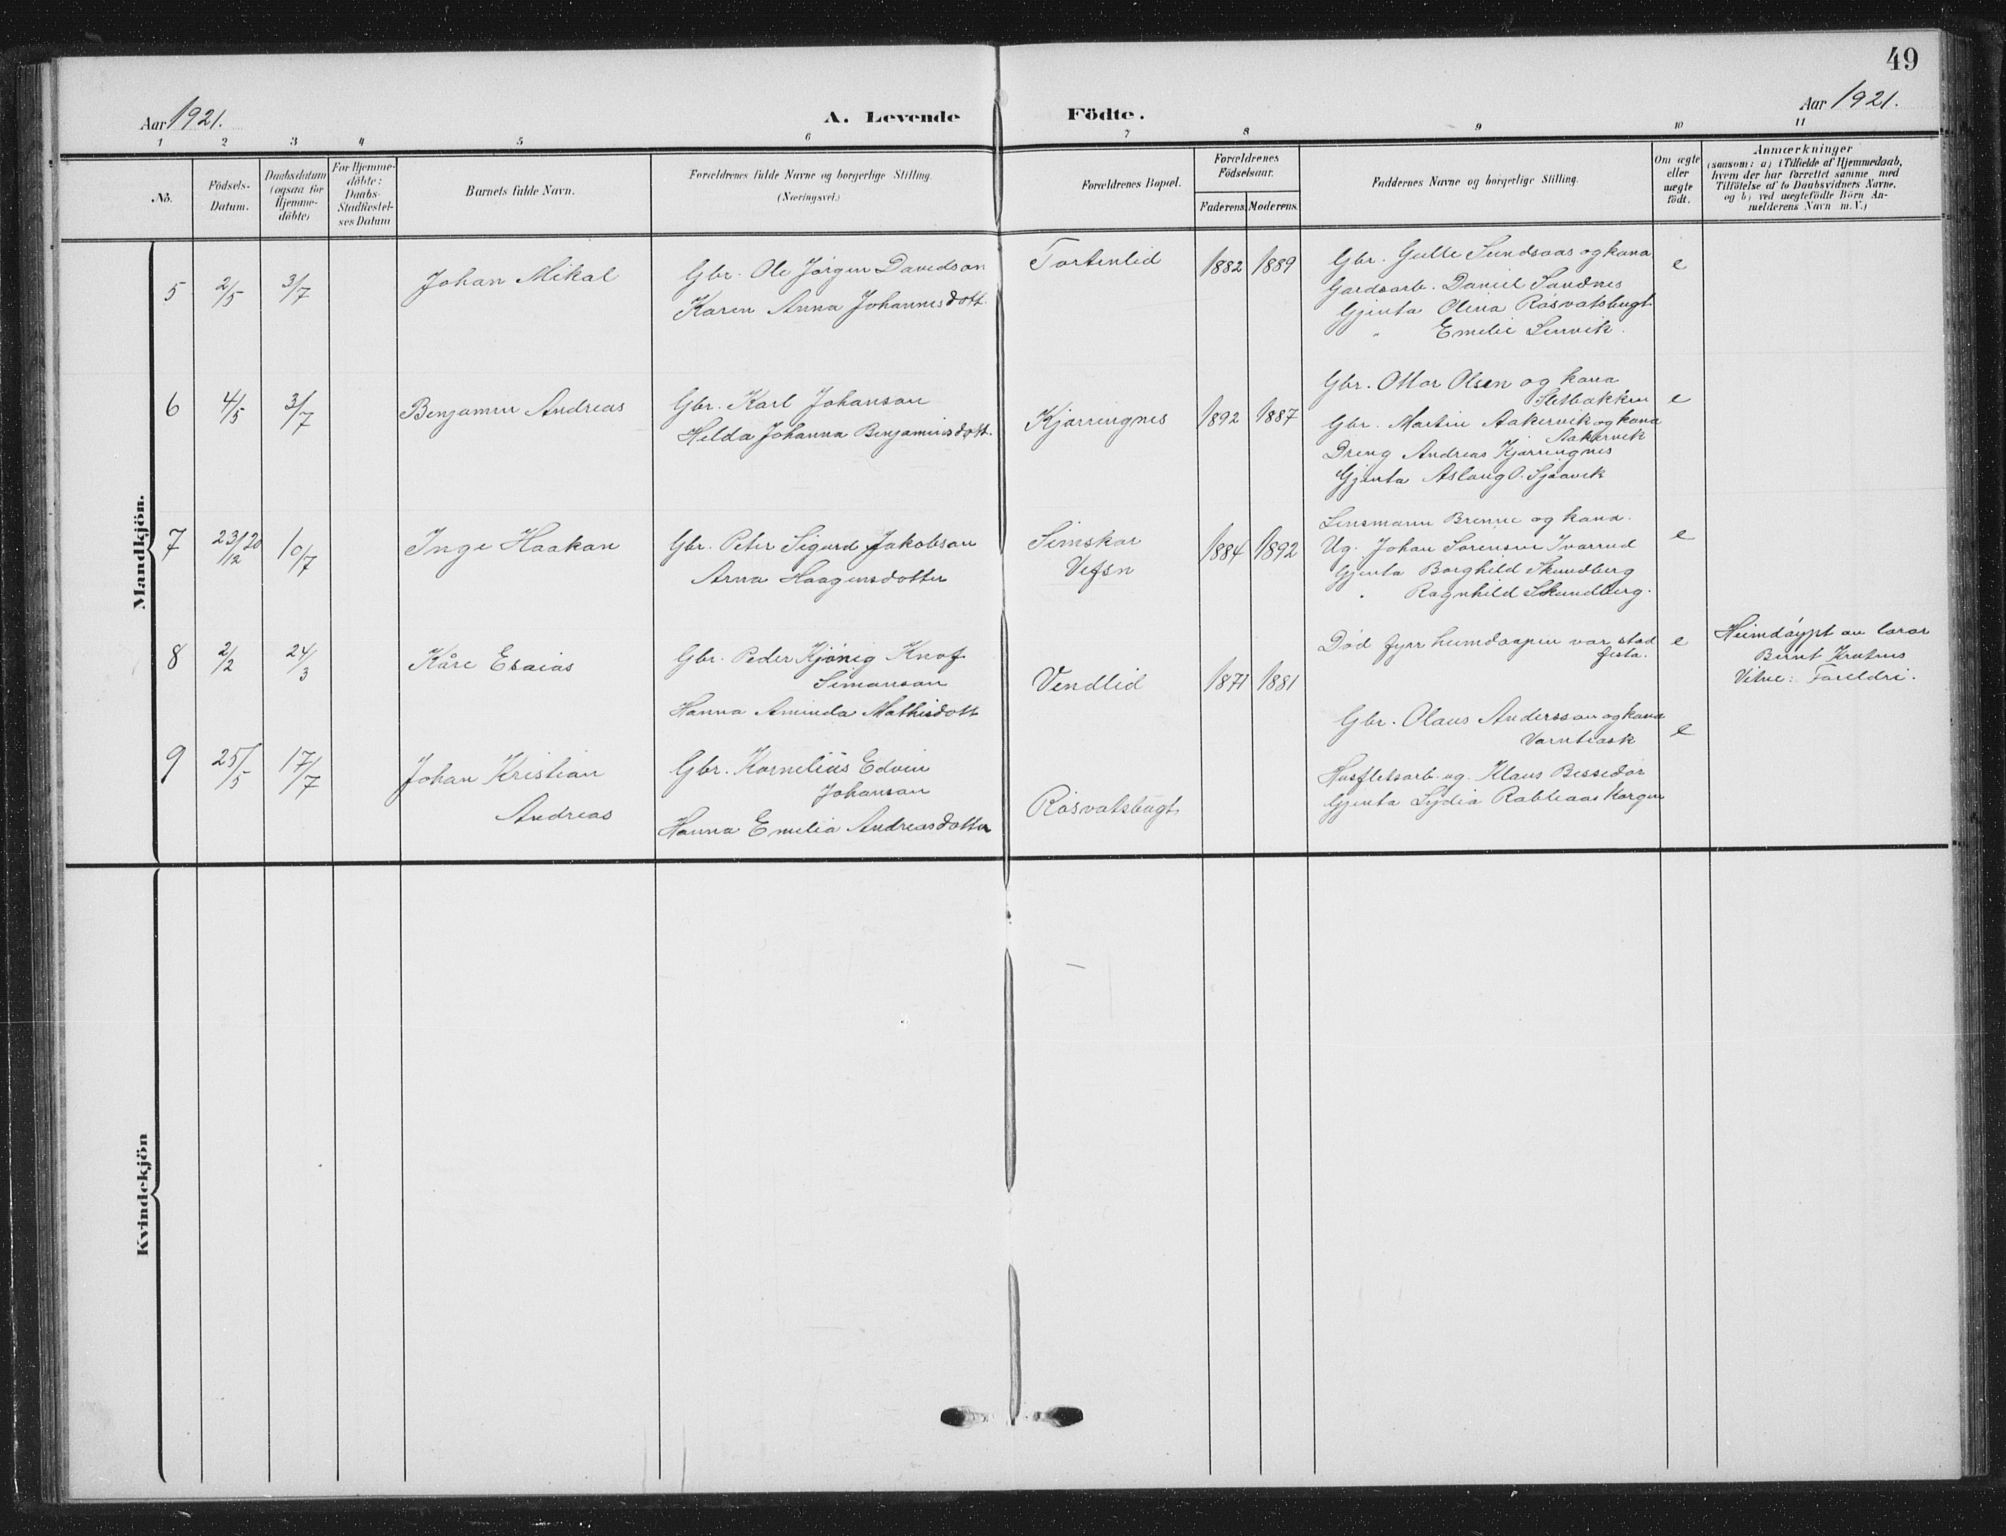 49
Aar 1921.
A. Levende Födte.
Aar 1921.
1 2 3 4 5 6 7 8 9 10 11
No.
Födsels-Datum.
Daabsdatum (ogsaa for Hjemme-döbte)
For Hjemme-döbte: Daabs-Stadfæstel-ses Datum
Barnets fulde Navn.
Forældrenes fulde Navne og borgerlige Stilling.
(Næringsvei.)
Forældrenes Bopæl.
Forældrenes Födselsaar.
Faderens. Moderens.
Faddernes Navne og borgerlige Stilling.
Om ægte eller uægte födt.
Anmærkninger
(saasom: a) i Tilfælde af Hjemmedaab,
hvem der har forrettet samme med
Tilföielse af to Daabsvidners Navne,
og b) ved uægtefödte Börn An-
melderens Navn m. V.)
Mandkjön.
5 2/5 3/7 Johan Mikal
Gbr. Ole Jørgen Davidson
Karen Anna Johannesdott.
Tortenlid 1882 1889
Gbr. Gulle Sundsaas og kona
Gardsarb. Daniel Sandnes
Gjenta Olina Røsvatsbugt
" Emelie Lenvik.
e
6 4/5 3/7 Benjamin Andreas
Gbr. Karl Johanson
Helda Johanna Benjaminsdott.
Kjærringnes 1892 1887
Gbr. Ottar Olsen og kona
Sletbakken
Gbr. Martin Aakervik og kona
Aakervik
Dreng Andreas Kjærringnes
Gjenta Aslaug O. Sjaavik
e
7 23/12 20 10/7 Inge Haakan
Gbr. Peter Sigurd Jakobson
Arna Haagensdotter
Simskar
Vefsn
1884 1892
Lensmann Brenne og kona.
Ug. Johan Sørensen Ivarrud
Gjenta Borghild Skundberg
" Ragnhild Skundberg.
e
8 2/2 24/3 Kåre Esaias
Gbr. Peder Kjønig Knof
Simonson
Hanna Aminda Mathisdott
Vendlid 1871 1881
Død fyrr heimdaapen var stad
festa.
e
Heimdøypt av lærar
Bernt Krutnes
Vitne: Foreldri.
9 25/5 17/7 Johan Kristian
Andreas
Gbr. Kornelius Edvin
Johanson
Hanna Emelia Andreasdotter
Røsvatsbugt
Gbr. Olaus Andersson og kona
Varntresk
Husfletsarb. ug. Klaus Bessedør
Gjenta Lydia Rabliaas Korgen
e
Kvindekjön